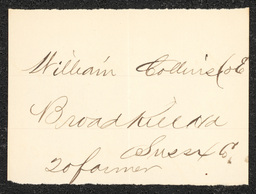 William Collins Co E
Broadkill
Sussex Co
20 farmer